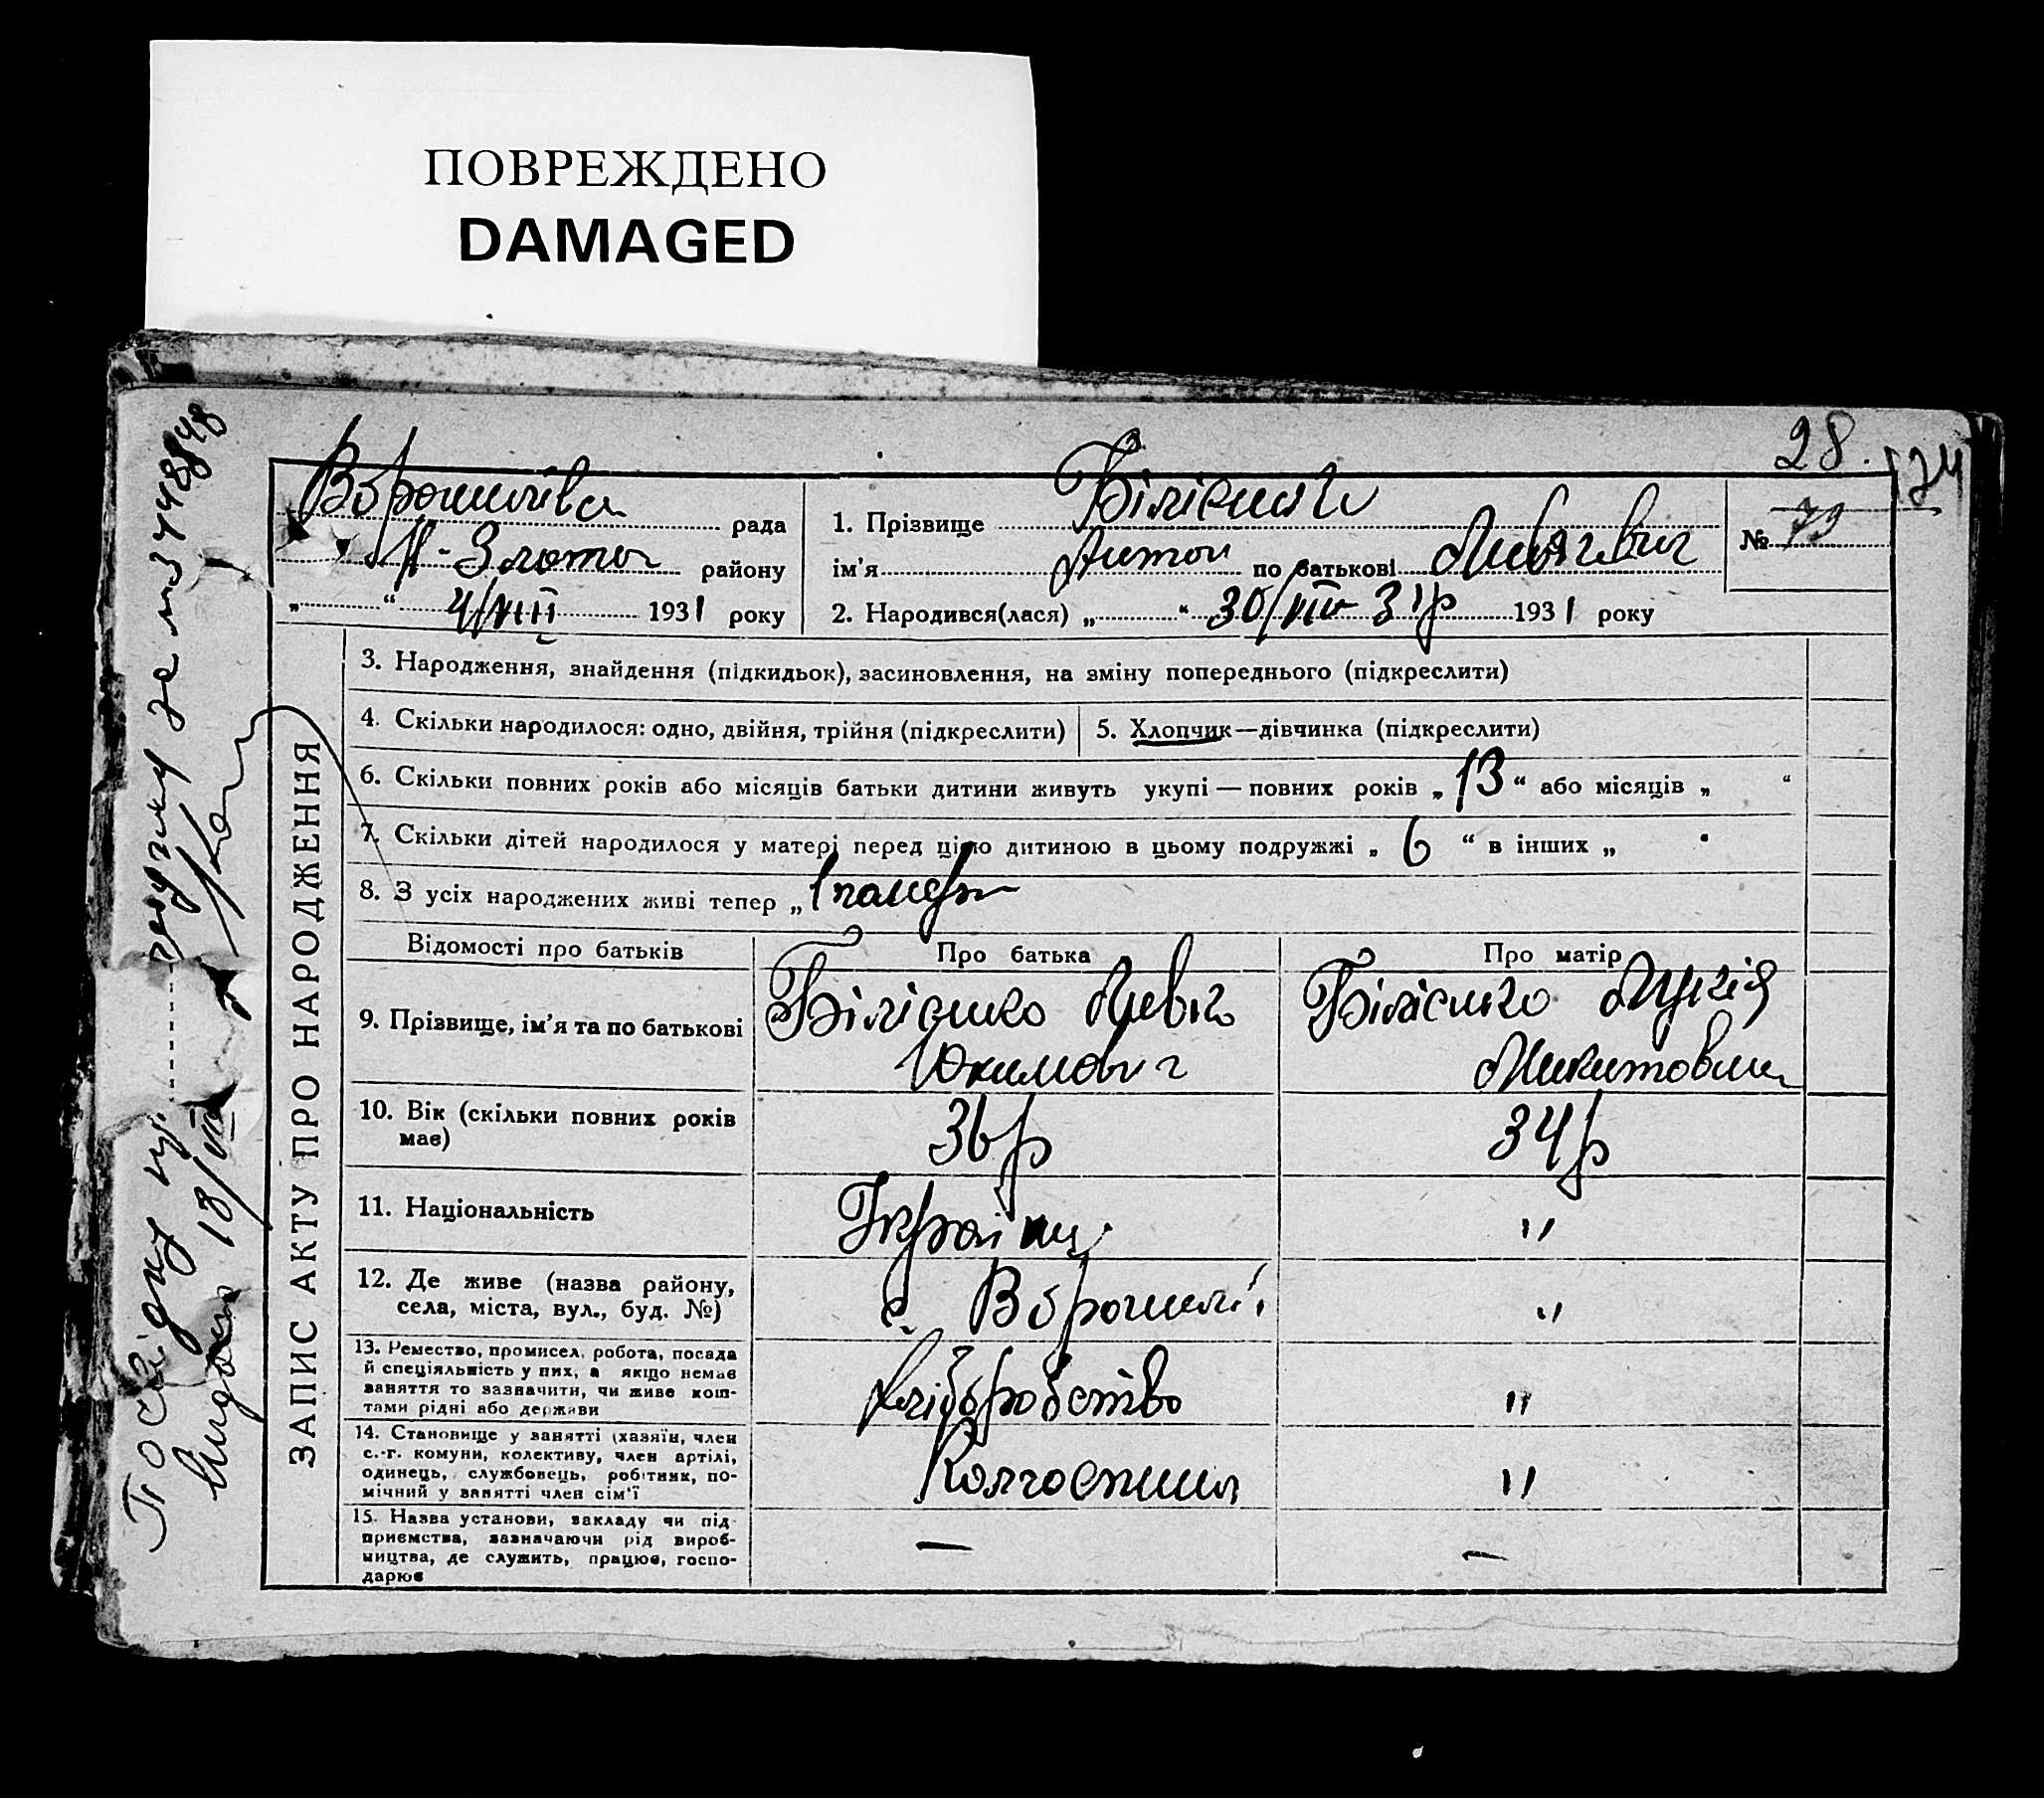 ПОВРЕЖДЕНО
DAMAGED
28.
рада
района
1. Прізвище
ім'я Антон по батькові
№ 79
району
„ “ 4/VIII 1931 року
2. Народився(лася) „ “ 30/VII 31р 1931 року
ЗАПИС АКТУ ПРО НАРОДЖЕННЯ
3. Народження, знайдення (підкидьок), засиновлення, на зміну попереднього (підкреслити)
4. Скільки народилося: одно, двійня, трійня (підкреслити)
5. Хлопчик—дівчинка (підкреслити)
6. Скільки повних років або місяців батьки дитини живуть укупі — повних років „ 13 “ або місяців „ “
7. Скільки дітей народилося у матері перед цією дитиною в цьому подружжі „ 6 “ в інших „ “
8. З усіх народжених живі тепер „
Відомості про батьків
Про батька
Про матір
9. Прізвище, ім'я та по батькові
Білієнко Левко
Юхимович
Білієнко
Микитовна
10. Вік (скільки повних років
має)
36р
34р
11. Національність
Україн
"
12. Де живе (назва району,
села, міста, вул., буд. №)
с.
"
13. Ремество, промисел, робота, посада
й спеціяльність у них, а якщо немає
заняття то зазначити, чи живе кош-
тами рідні або держави
хліборобство
"
14. Становище у занятті (хазяїн, член
с.-г. комуни, колективу, член артілі,
одинець, службовець, робітник, по-
мічний у занятті член сім'ї
Колгоспник
"
15. Назва установи, закладу чи під-
приємства, зазначаючи рід вироб-
ництва, де служить, працює, госпо-
дарює
—
—